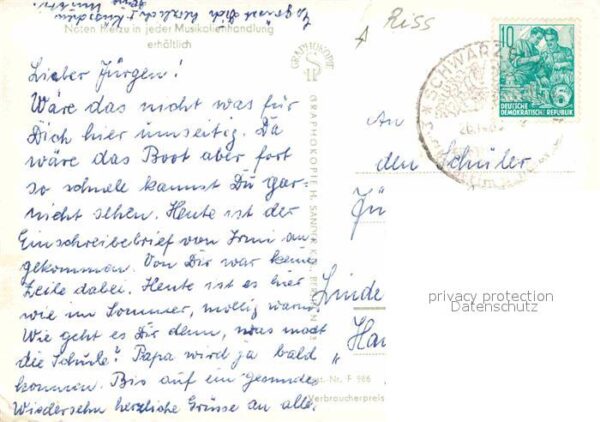 Noten hierzu in jeder Musikalienhandlung
erhältlich
Lieber Jürgen!
Wäre das nicht was für
Dich hier umseitig. Da
wäre das Boot aber fort
so schnell kannst Du gar
nicht sehen. Heute ist der
Einschreibebrief von Irmi an
gekommen. Von Dir war keine
Zeile dabei. Heute ist es hier
wie im Sommer, mollig warm
Wie geht es Dir denn, was macht
die Schule? Papa wird ja bald
kommen. Bis auf ein gesundes
Wiedersehn herzliche Grüsse an alle.
Es grüsst Dich herzlichst
GRAPHOKOPIE
GRAPHOKOPIE H. SANDER K.G., BERLIN
Riss
10
DEUTSCHE
DEMOKRATISCHE REPUBLIK
SCHWARZ
An
den Schüler
Jü
Linde
Ha
Nr. F 986
Verbraucherpreis
privacy protection
Datenschutz